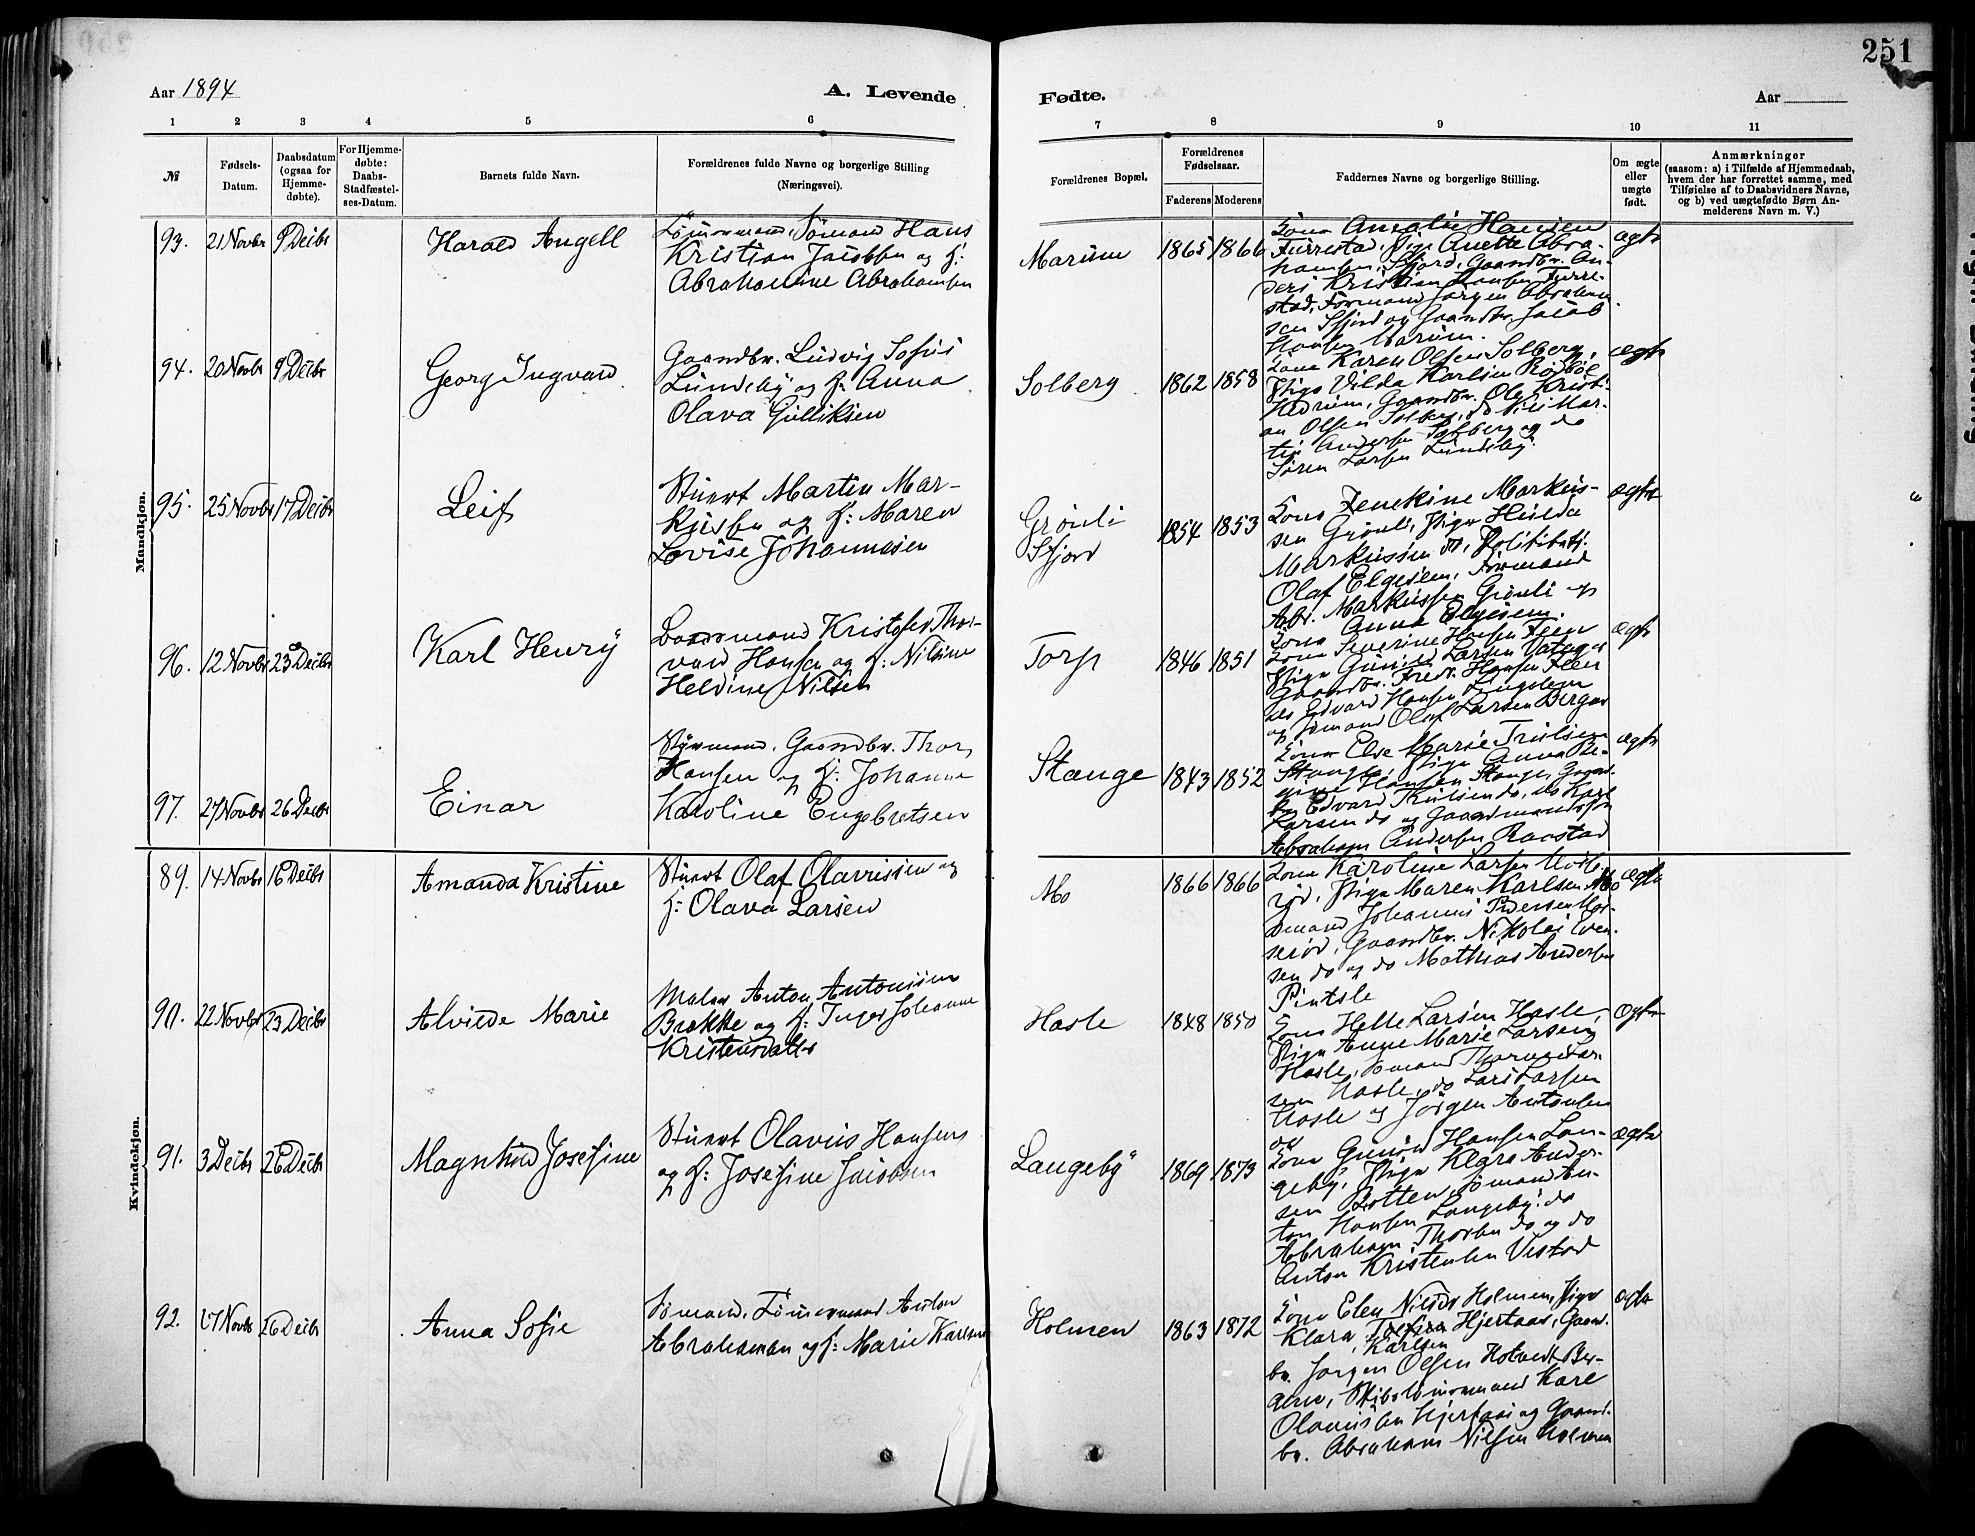 251
Aar 1894
A. Levende
Fødte.
Aar
1 2 3 4 5 6
7 8 9 10 11
№
Fødsels-
Datum.
Daabsdatum
(ogsaa for
Hjemme-
døbte).
For Hjemme-
døbte:
Daabs-
Stadfæstel-
ses-Datum.
Barnets fulde Navn.
Forældrenes fulde Navne og borgerlige Stilling
(Næringsvei).
Forældrenes Bopæl.
Forældrenes
Fødselsaar.
Faderens Moderens
Faddernes Navne og borgerlige Stilling.
Om ægte
eller
uægte
født.
Anmærkninger
(saasom: a) i Tilfælde af Hjemmedaab,
hvem der har forrettet samme, med
Tilføielse af to Daabsvidners Navne,
og b) ved uægtefødte Børn An-
melderens Navn m. V.)
Mandkjøn.
93. 21 Novbr 9 Decbr
Harald Angell
Tömmermand, Sömand Hans
Kristian Jacobsen og h:
Abrahamine Abrahamsen
Marum
1865 1866
Kona Amalie Hansen
Furrestad, Pige Anette Abra-
hamsen, Sfjord, Gaardbr. An-
ders Kristian Hansen Furre-
stad, Formand Jörgen Abraham
sen Sfjord og Gaardbr. Jacob
Hansen Marum.
ægte
94. 20 Novbr 9 Decbr
Georg Ingvard
Gaardbr. Ludvig Sofus
Lundeby og h: Anna
Olava Gulliksen
Solberg
1862 1858
Kona Karen Olsen Solberg,
Pige Vilda Karlsen
Hedrum, Gaardbr. Ole Kristi-
an Olsen Solberg, do Nils Mar-
tin Andersen Solberg og do
Sören Larsen Lundeby.
ægte
95. 25 Novbr 17 Decbr
Leif
Stuert Martin Mar-
kusen og h: Maren
Lovise Johannesen
Grönli
Sfjord
1854 1853
Kona Markus-
sen Grönli, Pige Hulda
Markussen do, Politibetj.
Olaf Elgesem, Formand
Abr. Markussen Grönli og
Kona Anna Elgesem.
ægte
96. 12 Novbr 23 Decbr
Karl Henry
Kristofer Thor-
vald Hansen og h: Nilsine
Heldine Nilsen
Torp
1846 1851
Kona Severine Hansen Feen
Pige Gunild Larsen
Gaardbr. Fredr. Hansen Feen
do Edvard Hansen Lingelem
og Sömand Olaf Larsen Bergan
ægte
97. 27 Novbr 26 Decbr
Einar
Styrmand, Gaardbr. Thor
Hansen og h: Johanne
Karoline Engebretsen
Stange
1843 1852
Kona Else Marie
Stange, Pige Anna Re-
gine Hansen Stange, Gaard-
br. Edvard do, do Karl
Larsen do og Gaardmandssön
Abraham Andersen Raastad
ægte
Kvindekjøn.
89. 14 Novbr 16 Decbr
Amanda Kristine
Stuert Olaf Olavesen og
h: Olava Larsen
Mo
1866 1866
Kona Karoline Larsen
röd, Pige Maren Karlsen Mo
Sömand Johannes Pedersen
seröd, Gaardbr. Nikolai Even-
sen do og do Mathias Andersen
Pintsle
ægte
90. 22 Novbr 23 Decbr
Alvilde Marie
Maler Anton Antonsen
Brække og h: Inger Johanne
Kristensdatter
Hasle
1848 1850
Kona Helle Larsen Hasle,
Pige Anne Marie Larsen
Hasle, Sömand Thorvald Lar-
sen Hasle, do Lars Larsen
Hasle og Jörgen Antonsen
do
ægte
91. 3 Decbr 26 Decbr
Magnhild Josefine
Stuert Olavus Hansen
og h: Josefine Jacobsen
Langeby
1869 1873
Kona Gunild Hansen Lan-
geby, Pige Klara Ander-
sen Botten, Sömand An-
ton Hansen Langeby, do
Abraham Thorsen do og do
Anton Kristensen Vestad
ægte
92. 27 Novbr 26 Decbr
Anna Sofie
Sömand, Tömmermand Anton
Abrahamsen og h: Marie Karlsen
Holmen
1863 1872
Kona Elen Nilsen Holmen, Pige
Klara Hjertaas, Gaard-
Karlsen
br. Jörgen Olsen Hotvedt Ber-
gan, Skibstömmermand Karl
Olavesen Hjertaas og Gaard-
br. Abraham Nilsen Holmen
ægte